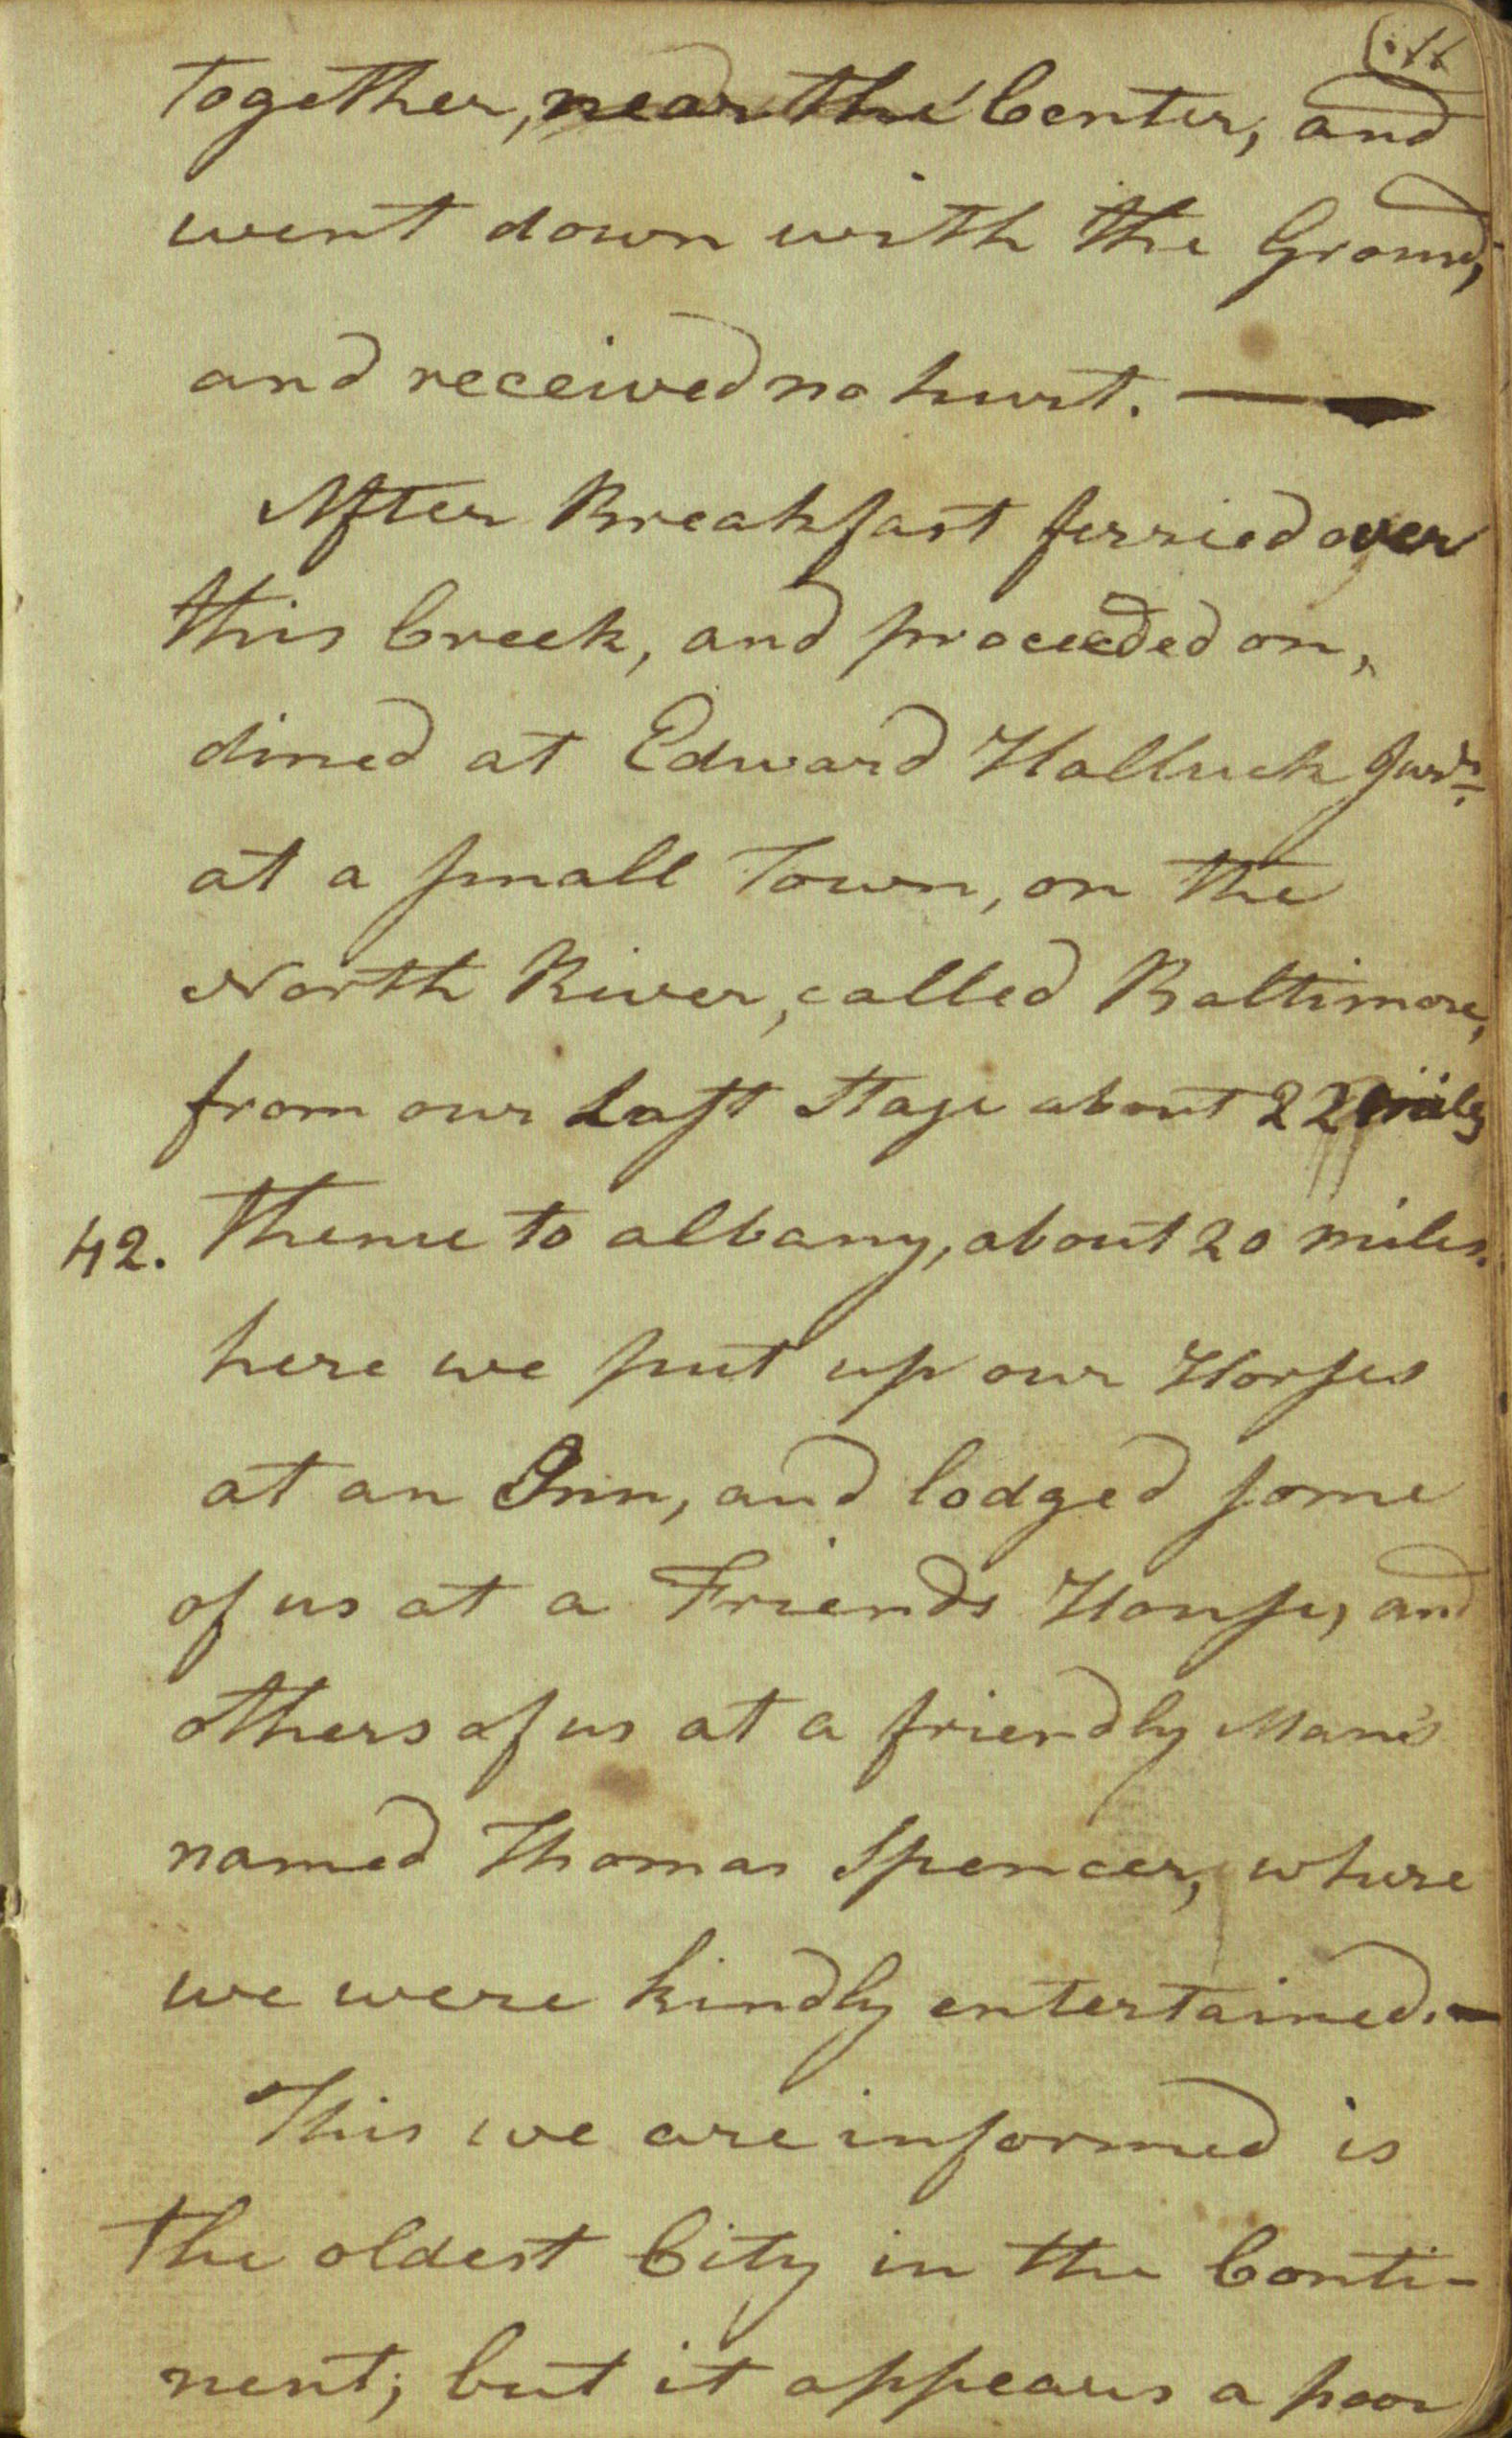 together, near the Center, and
went down with the Ground,
and received no hurt. —
After Breakfast ferried over
this Creek, and proceeded on,
dined at Edward Halluck Junr.
at a small Town, on the
North River, called Baltimore,
from our Last Stage about 22 miles
42. Thence to albany, about 20 miles.
here we put up our Horses
at an Inn, and lodged some
of us at a Friends House, and
others of us at a friendly Man's
named Thomas Spencer, where
we were kindly entertained. —
This we are informed is
the oldest City in the Conti-
nent; but it appears a poor